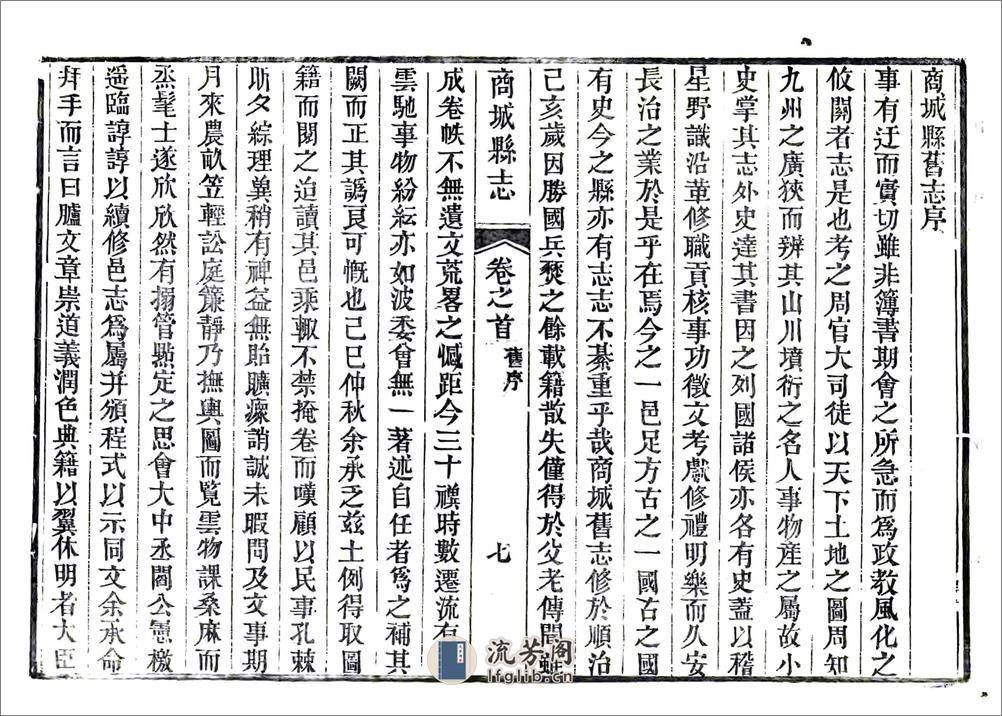 商城縣舊志序
事有迂而實切雖非簿書期會之所急而爲政教風化之
攸關者志是也考之周官大司徒以天下土地之圖周知
九州之廣狹而辨其山川墳衍之名人事物産之屬故小
史掌其志外史達其書因之列國諸侯亦各有史蓋以稽
星野識沿革修職貢核事功徵文考獻修禮明樂而久安
長治之業於是乎在焉今之一邑足方古之一國古之國
有史今之縣亦有志志不綦重乎哉商城舊志修於順治
己亥歲因勝國兵燹之餘載籍散失僅得於父老傳聞雖
商城縣志 卷之首 舊序 七
成卷帙不無遺文荒畧之憾距今三十禩時數遷流有
雲馳事物紛紜亦如波委會無一著述自任者爲之補其
闕而正其譌良可慨也己巳仲秋余承乏茲土例得取圖
籍而閱之迫讀其邑乘輙不禁掩卷而嘆顧以民事孔棘
斯夕綜理冀稍有裨益無貽曠瘝誚誠未暇問及文事期
月來農畝笠輕訟庭簾靜乃撫輿圖而覽雲物課桑麻而
烝髦士遂欣欣然有搦管㸃定之思會大中丞閻公憲檄
遥臨諄諄以續修邑志爲屬并頒程式以示同文余承命
拜手而言曰臚文章崇道義潤色典籍以翼休明者大臣
流芳阁
lfglib.cn